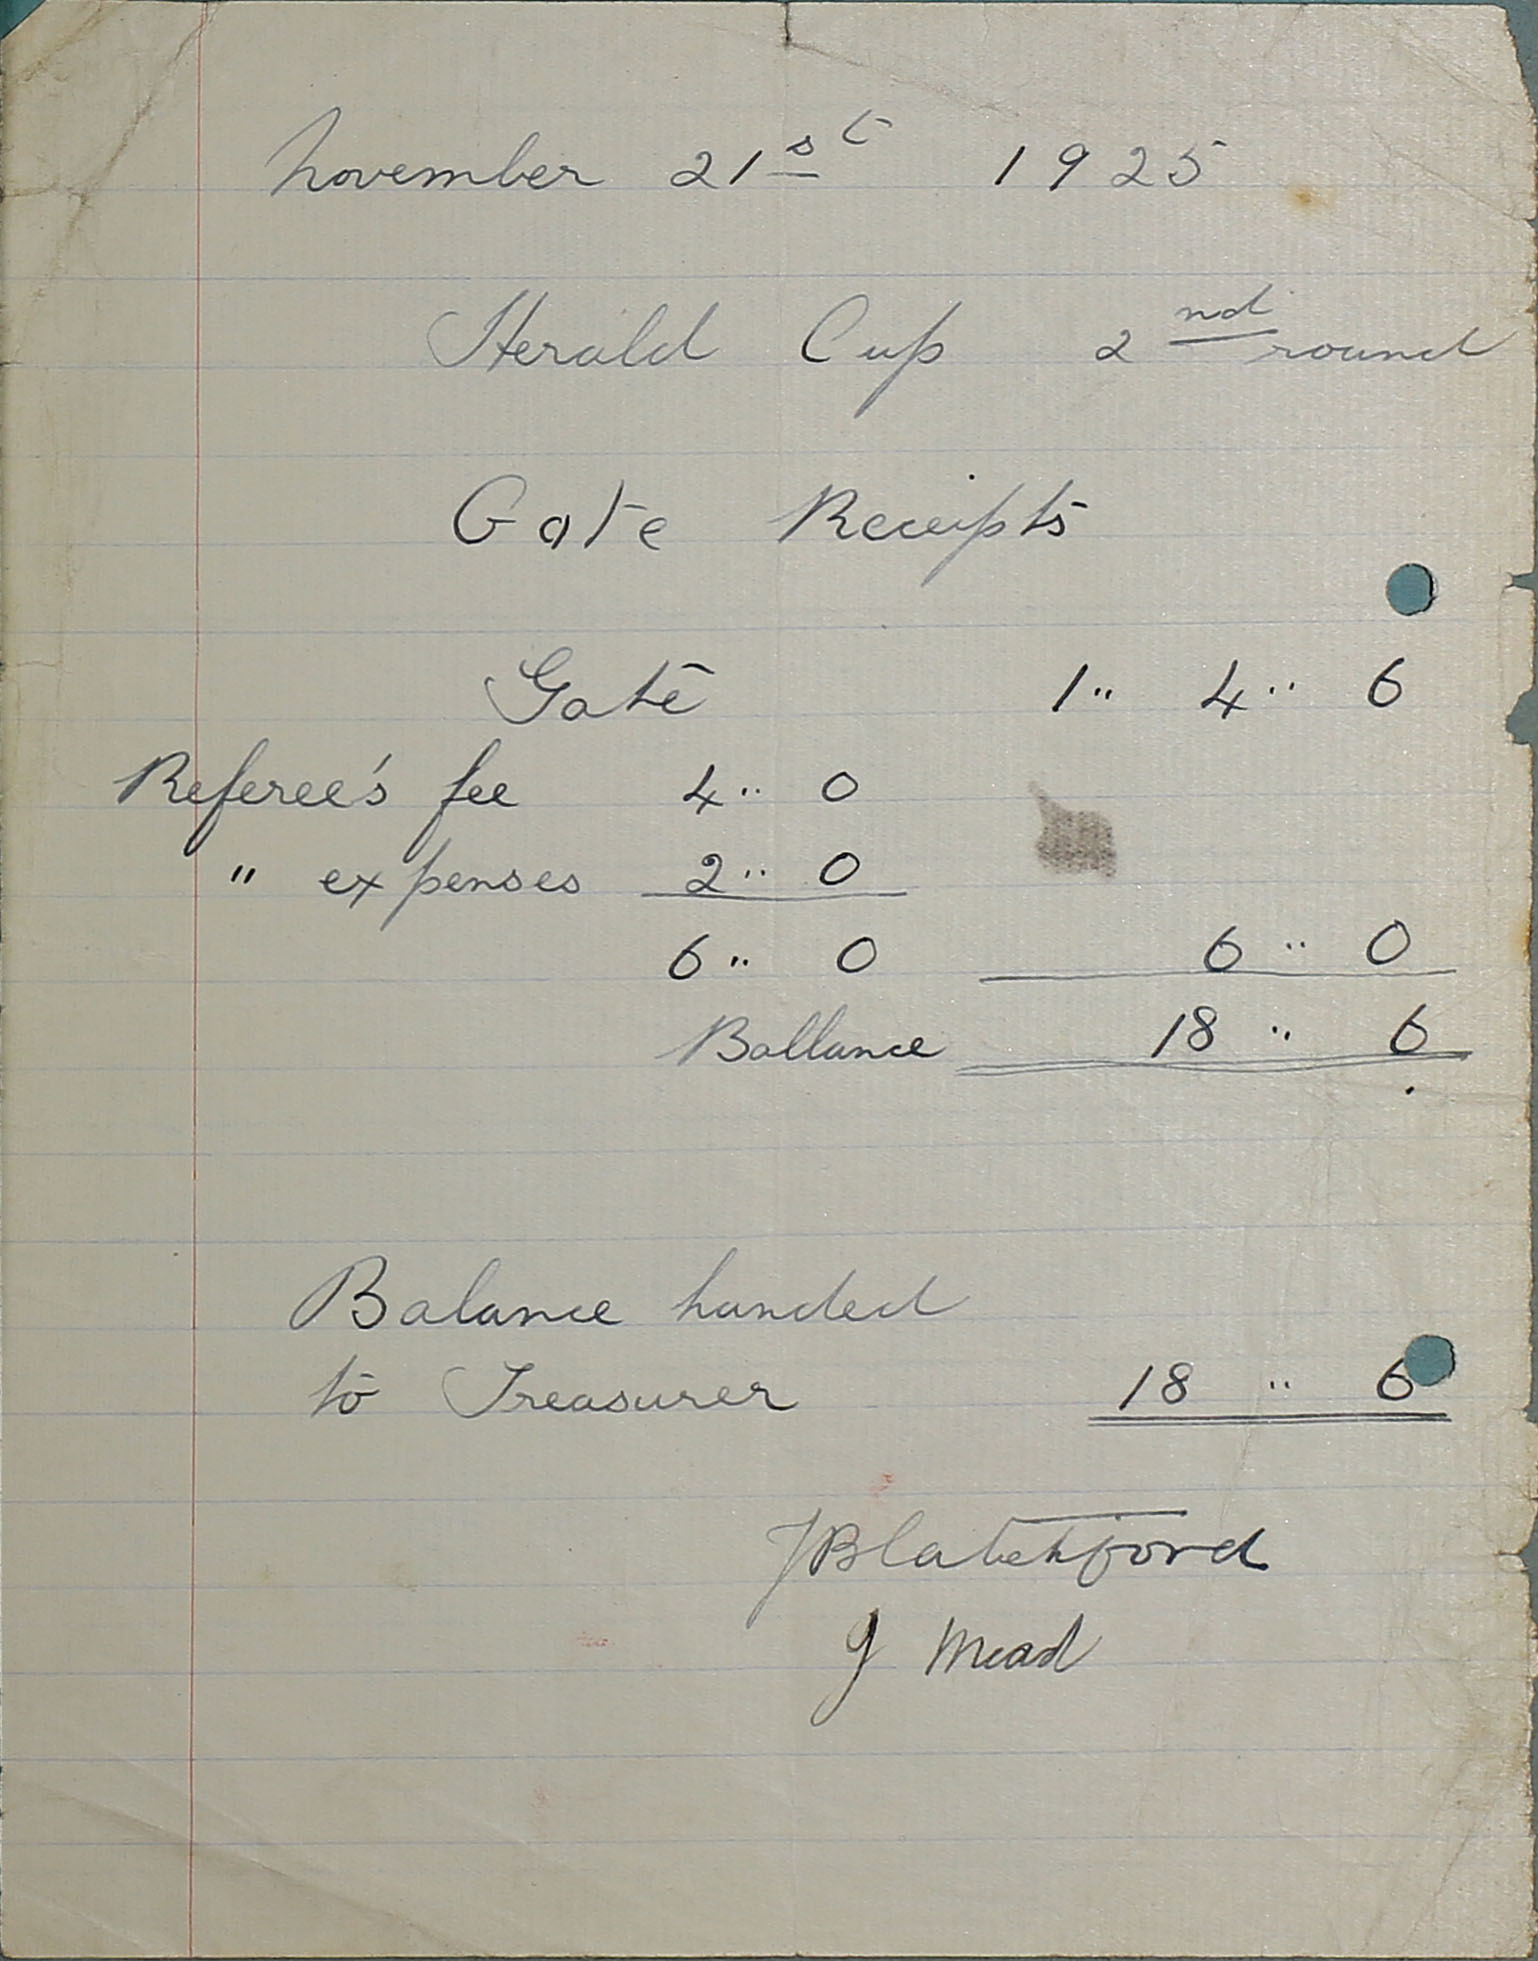 November 21st 1925
Herald Cup 2nd round
Gate Receipts
Gate 1" 4" 6
Referee's fee 4" 0
" expenses 2" 0
6" 0 6" 0
Ballance 18" 6
Balance handed
to Treasurer 18" 6
J Blatchford
J Mead